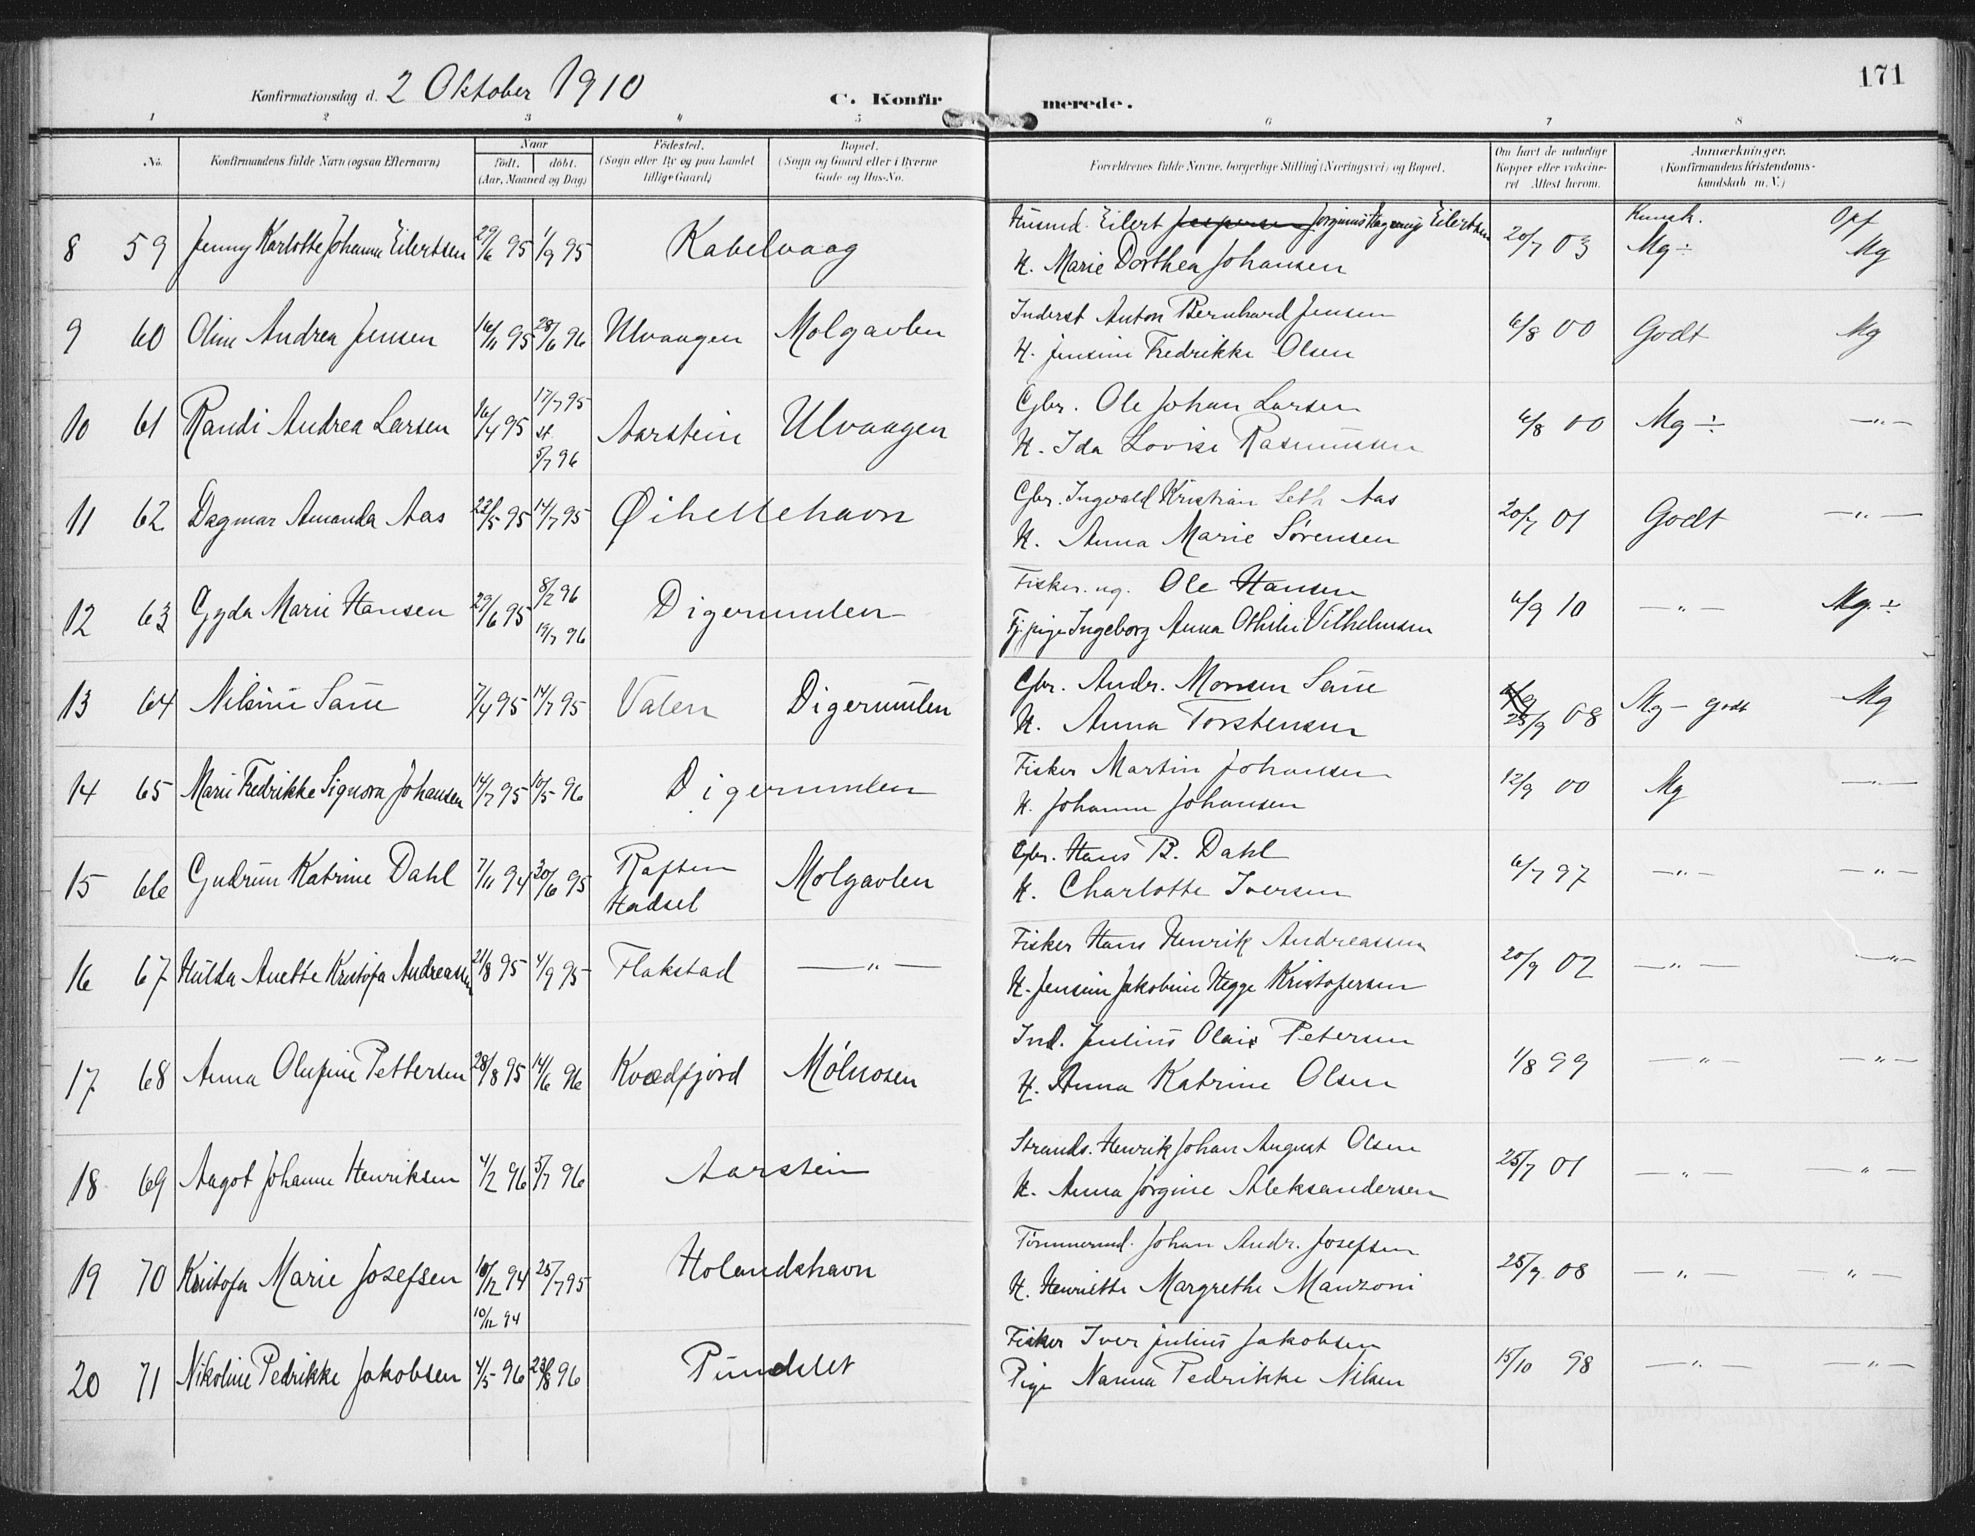 171
Konfirmationsdag d. 2 Oktober 1910
C. Konfirmerede.
1 2 3 4 5 6 7 8
No. Konfirmandens fulde Navn (ogsaa Efternavn)
Naar
født. døbt.
(Aar, Maaned og Dag)
Fødested.
(Sogn eller By og paa Landet
tillige Gaard)
Bopæl.
(Sogn og Gaard eller i Byerne
Gade og Hus-No.
Forældrenes fulde Navne, borgerlige Stilling (Næringsvei) og Bopæl.
Om havt de naturlige
Kopper eller vakcine-
ret Attest herom.
Anmærkninger.
(Konfirmandens Kristendoms-
kundskab m. V.)
Kunsk. Opf
8 59 Jenny Karlotte Johanna Eilertsen 29/6 95 1/9 95 Kabelvaag
Husmd. Eilert Jespersen Jørginus Hagerup Eilertsen 20/7 03 Mg ÷ Mg
H. Marie Dorthea Johansen
9 60 Oline Andrea Jensen 16/11 95 28/6 96 Ulvaagen Molgavlen
Inderst Anton Bernhard Jensen 6/8 00 Godt Mg
H. Jensine Fredrikke Olsen
10 61 Randi Andrea Larsen 16/4 95 17/7 95 st. 5/7 96 Aarstein Ulvaagen
Gbr. Ole Johan Larsen 6/8 00 Mg ÷ —„—
H. Ida Lovise Rasmussen
11 62 Dagmar Amanda Aas 22/5 95 14/7 95 Øihellehavn
Gbr. Ingvald Kristian Seth Aas 20/7 01 Godt —„—
H. Anna Marie Sørensen
12 63 Gyda Marie Hansen 29/6 95 8/2 96 19/7 96 Digermulen
Fisker. ug. Ole Hansen 6/9 10 —„— Mg. ÷
Tj. pige Ingeborg Anna Othilie Vilhelmsen
13 64 Nilsine Saue 7/4 95 14/7 95 Valen Digermulen
Gbr. Andr. Monsen Saue 25/9 08 Mg – godt Mg
H. Anna Torstensen
14 65 Marie Fredrikke Signora Johansen 14/7 95 10/5 96 Digermulen
Fisker Martin Johansen 12/9 00 Mg —„—
H. Johanne Johansen
15 66 Gudrun Katrine Dahl 7/11 94 30/6 95 Raften Hadsel Molgavlen
Gbr. Hans B. Dahl 6/7 97 —„— —„—
H. Charlotte Iversen
16 67 Hulda Anette Kristofa Andreassen 21/8 95 4/9 95 Flakstad —„—
Fisker Hans Henrik Andreassen 20/9 02 —„— —„—
H. Jensine Jakobine Hegge Kristofersen
17 68 Anna Olufine Pettersen 28/8 95 14/6 96 Kvædfjord Mølnosen
Ind. Julius Olai Petersen 1/8 99 —„— —„—
H. Anna Katrine Olsen
18 69 Aagot Johanne Henriksen 4/2 96 5/7 96 Aarstein
Strands. Henrik Johan August Olsen 25/7 01 —„— —„—
H. Anna Jørgine Aleksandersen
19 70 Kristofa Marie Josefsen 10/12 94 25/7 95 Holandshavn
10/12 94
Tømmermd. Johan Andr. Josefsen 25/9 08 —„— —„—
H. Henriette Margrethe Manzoni
20 71 Nikoline Pedrikke Jakobsen 4/5 96 23/8 96 Pundslet
Fisker Iver Julius Jakobsen 15/10 98 —„— —„—
Pige Nanna Pedrikke Nilsen